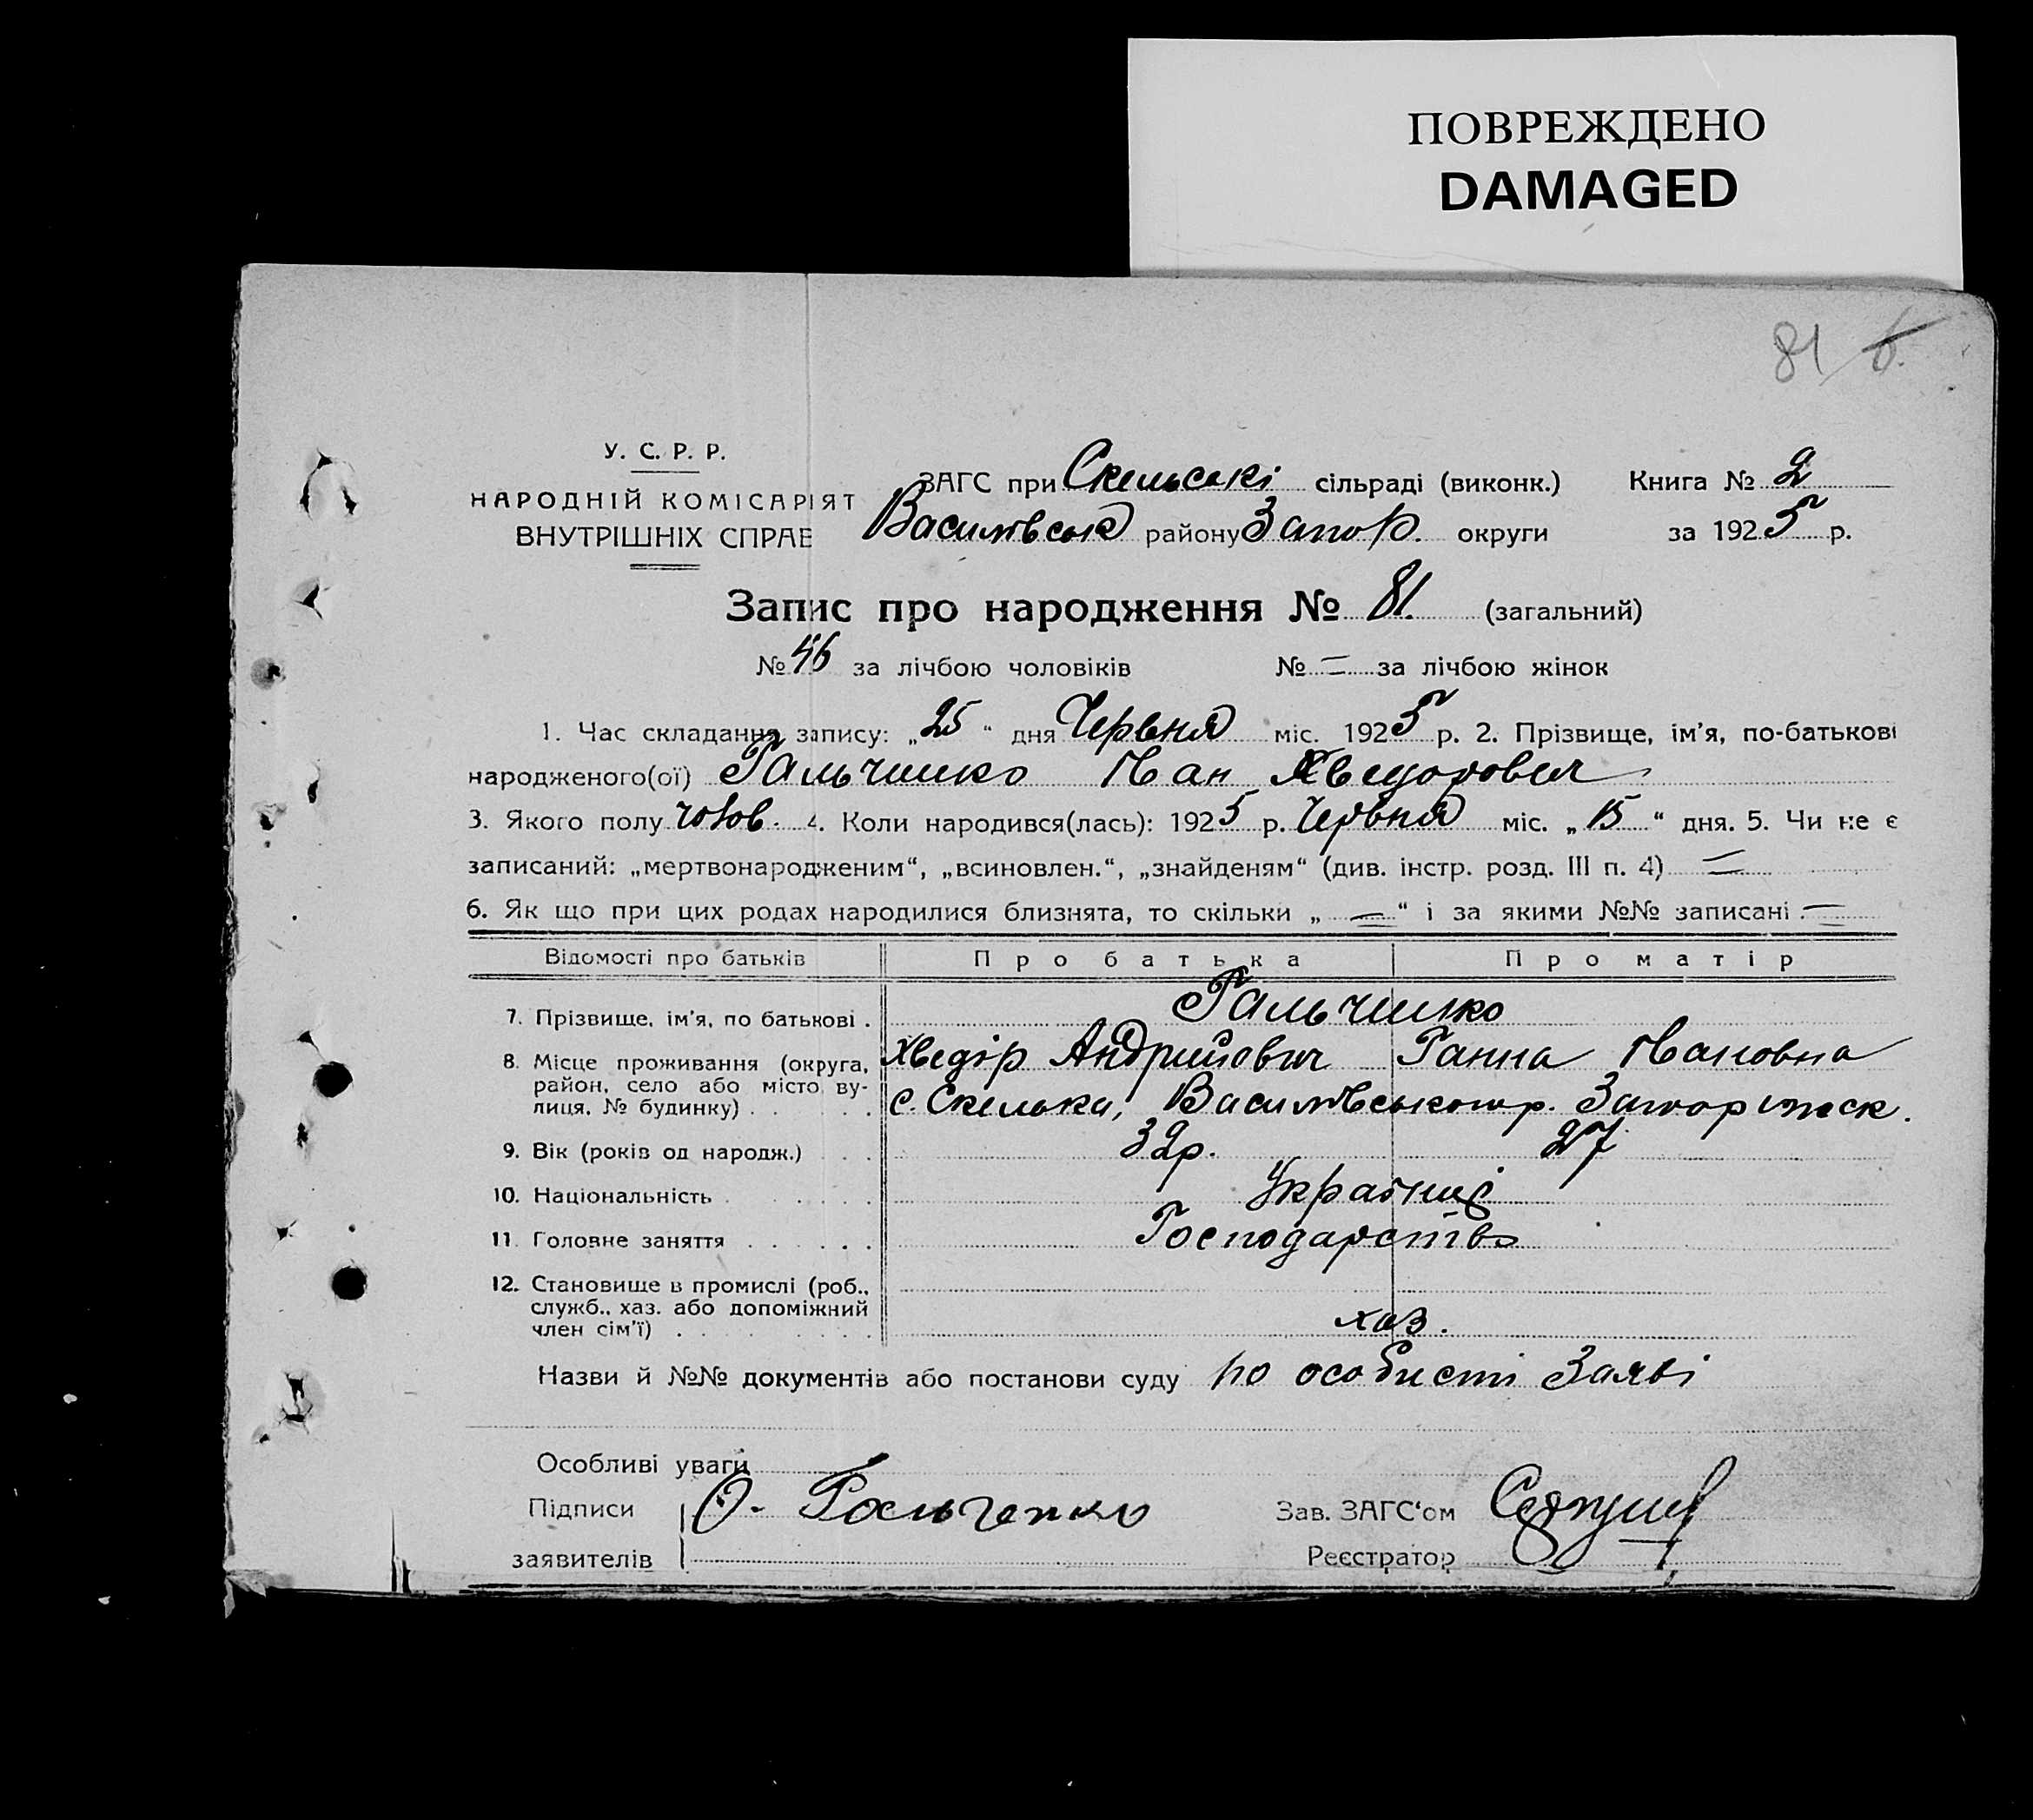 ПОВРЕЖДЕНО
DAMAGED
81
У. С. Р. Р.
НАРОДНІЙ КОМІСАРІЯТ
ВНУТРІШНІХ СПРАВ
ЗАГС при Скельскі сільраді (виконк.) Книга № 2
Василівськ району Запор. округи за 1925 р.
Запис про народження № 81 (загальний)
№ 46 за лічбою чоловіків № = за лічбою жінок
1. Час складання запису: „25“ дня Червня міс. 1925 р. 2. Прізвище, ім’я, по-батькові
народженого(ої) Гальченко Іван Хведорович
3. Якого полу чолов. 4. Коли народився(лась): 1925 р. Червня міс. „15“ дня. 5. Чи не є
записаний: „мертвонародженим“, „всиновлен.“, „знайденям“ (див. інстр. розд. III п. 4) =
6. Як що при цих родах народилися близнята, то скільки „=“ і за якими №№ записані =
Відомості про батьків Про батька Про матір
7. Прізвище, ім’я, по батькові . Гальченко
Хведір Андрийович Ганна Івановна
8. Місце проживання (округа,
район, село або місто ву-
лиця, № будинку) . . . . с. Скелька, Василівського р. Запоріжск.
9. Вік (років од народж.) . . . 32 р. 27
10. Національність . . . . . Українці
11. Головне заняття . . . . . Господарство
12. Становище в промислі (роб.,
служб., хаз. або допоміжний
член сім’ї) . . . . . . . хаз.
Назви й №№ документів або постанови суду по особисті Заяві
Особливі уваги
Підписи О. Гальченко Зав. ЗАГС‘ом
заявителів Реєстратор